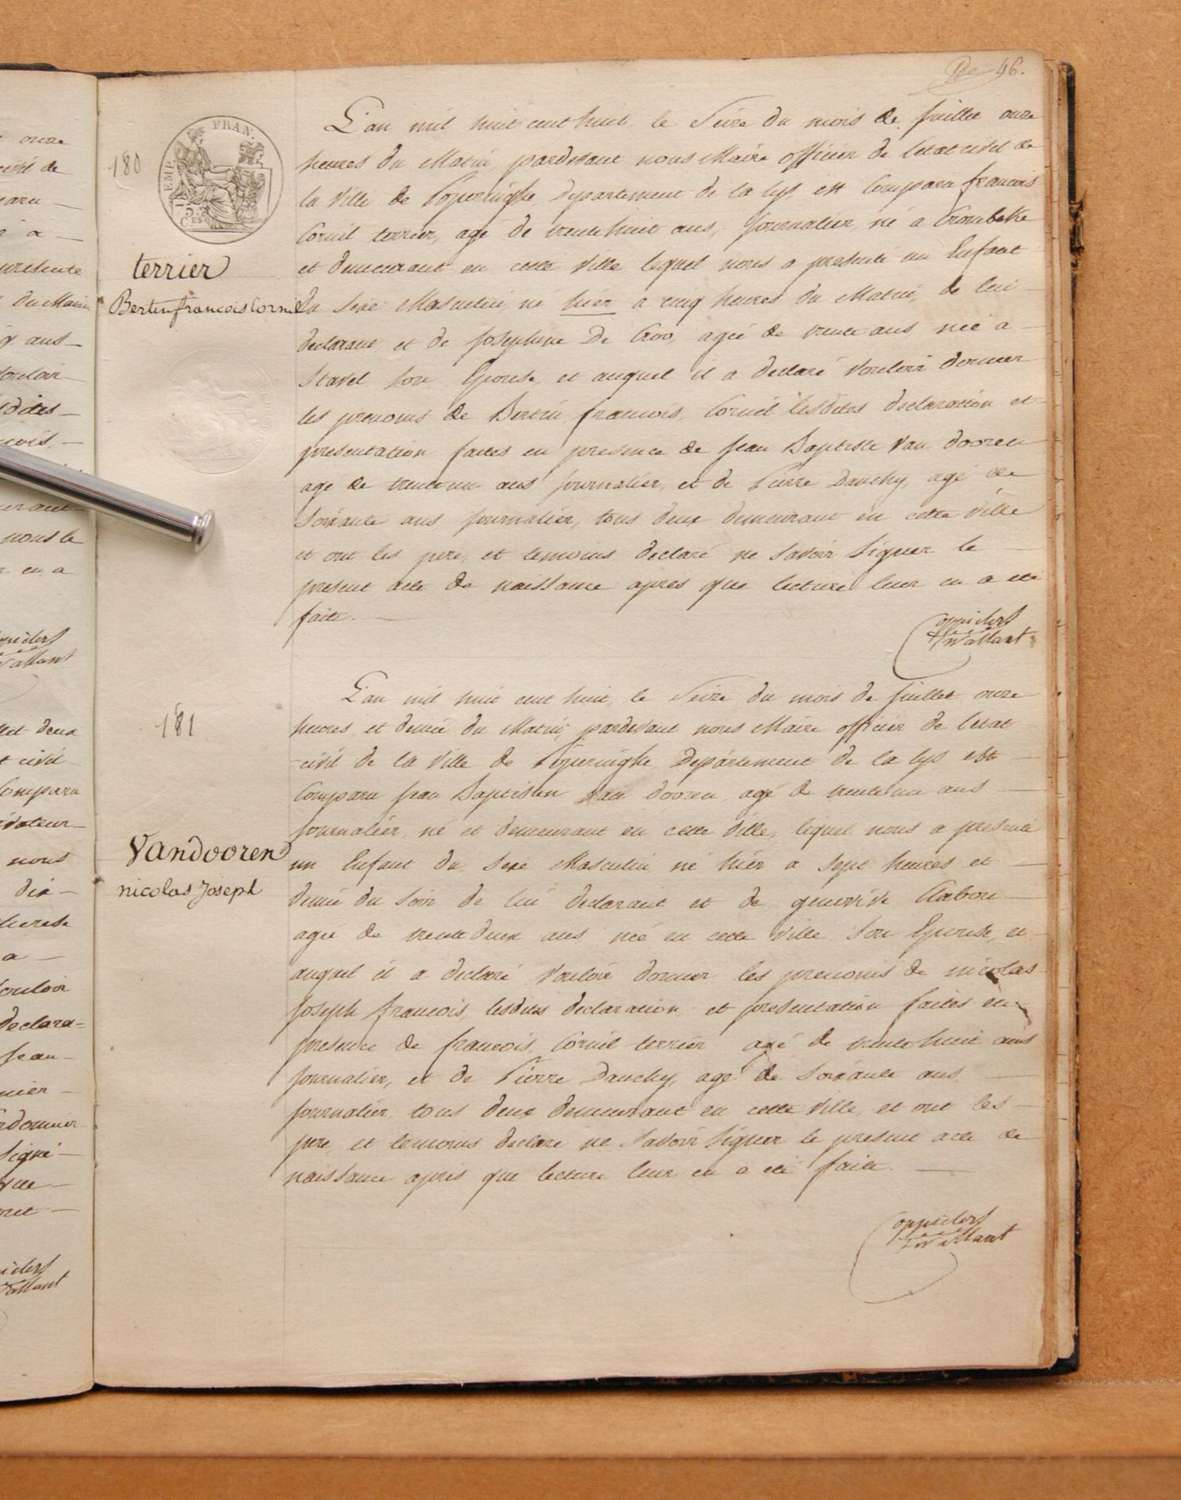 46.
180
TIMP. FRAN.
L'an mil huit cent huit le Seize du mois de juillet onze
heures du Matin pardevant nous Maire officier de l'etat civil de
la Ville de Poperinghe Departement de la lys est Comparu francois
Cornil terrier, agé de trente huit ans, Journalier, né a Crombeke
et demeurant en cette Ville lequel nous a presenté un Enfant
terrier
Bertin francois Cornil
du Sexe Masculin né hier a cinq heures du Matin, de lui
declarant et de Josephine De Croo, agée de trente ans née a
Stavel Son Epouse, et auquel il a declaré Vouloir donner
les prenoms de Bertin francois, Cornil lesdites declaration et
presentation faites en presence de Jean Baptiste Van dooren
agé de trente un ans journalier, et de Pierre Dauchy, agé de
Soixante ans journalier, tous deux demeurant en cette Ville
et ont les pere et temoins declaré ne Savoir Signer le
present acte de naissance apres que lecture leur en a eté
fait.
181
L'an mil huit cent huit, le Seize du mois de juillet onze
heures et demie du Matin, pardevant nous Maire officier de l'etat
civil de la Ville de Poperinghe Departement de la lys est
Comparu Jean Baptisten Van dooren, agé de trente un ans
journalier, né et demeurant en cette Ville, lequel nous a presenté
Vandooren
nicolas Joseph
un Enfant du Sexe Masculin né hier a Sept heures et
demie du Soir de lui declarant et de genevieve
agée de trente deux ans née en cette Ville Son Epouse, et
auquel il a declaré Vouloir donner les prenoms de nicolas
Joseph francois lesdites declaration et presentation faites en
presence de francois, Cornil terrier agé de trente huit ans
journalier, et de Pierre Dauchy, agé de Soixante ans
journalier, tous deux demeurant en cette Ville, et ont les
pere et temoins declaré ne Savoir Signer le present acte de
naissance apres que lecture leur en a eté faite.